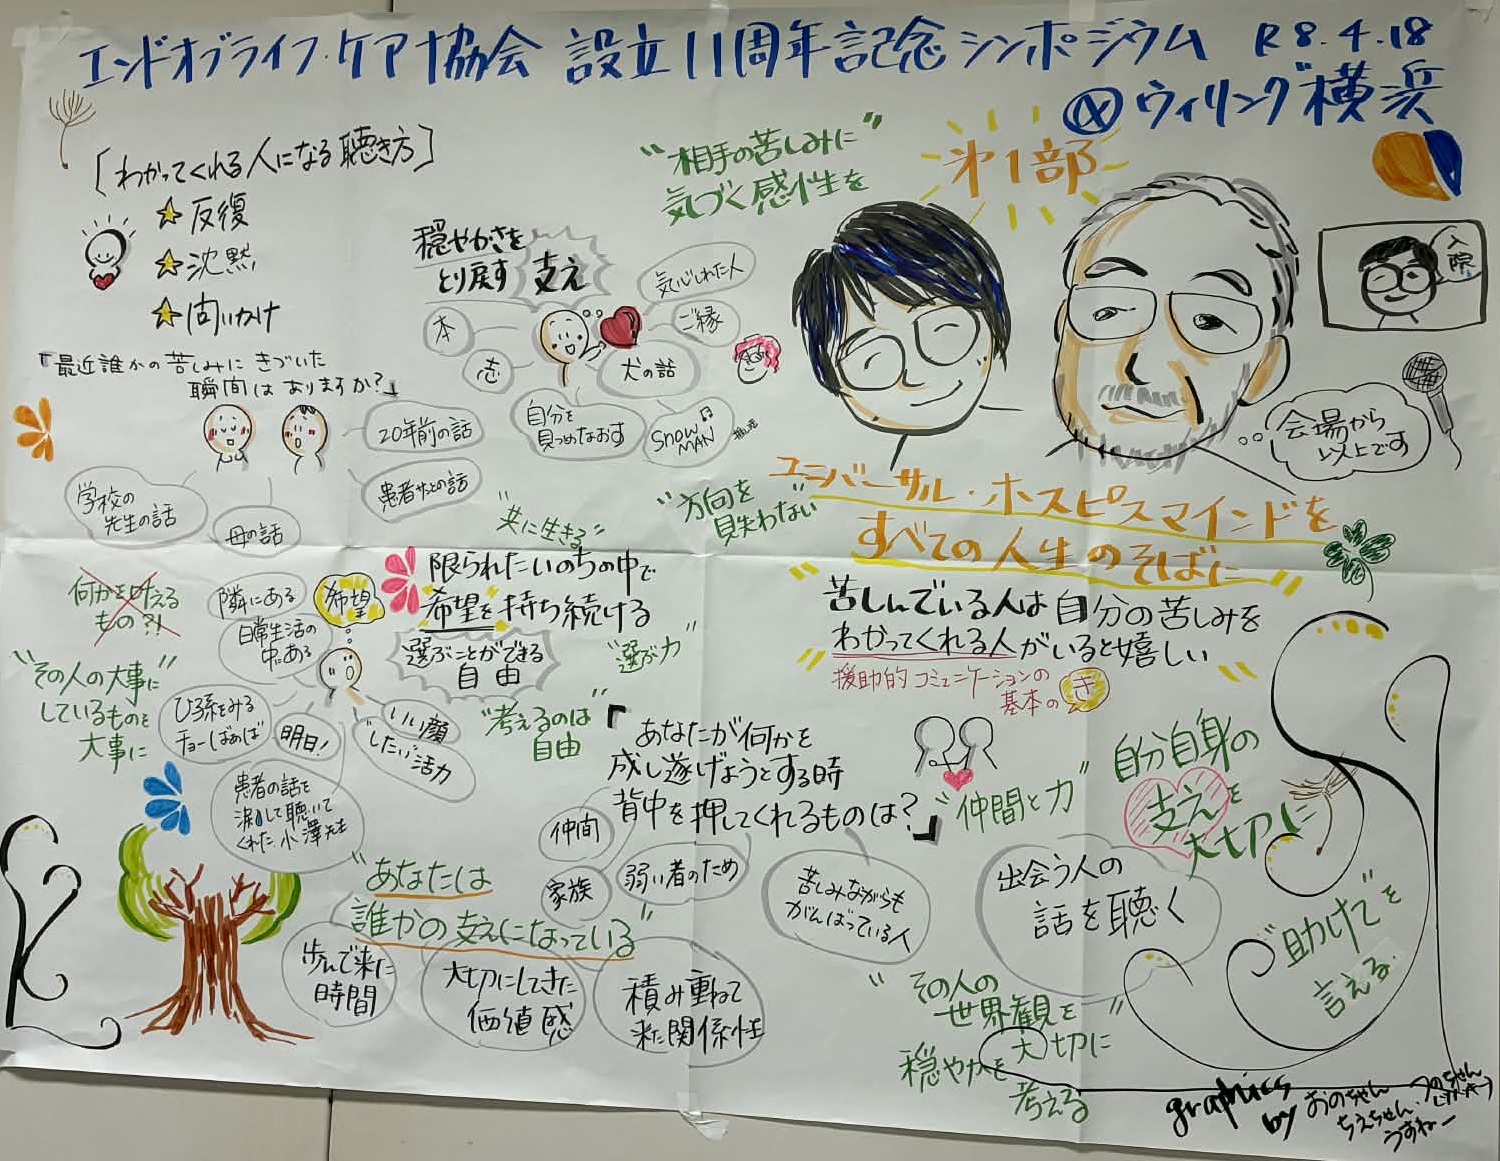 エンドオブライフ・ケア協会 設立11周年記念シンポジウム R8.4.18
@ウィリング横浜
[わかってくれる人になる聴き方]
☆反復
☆沈黙
☆問いかけ
「最近誰かの苦しみにきづいた
瞬間はありますか?」
20年前の話
患者さんとの話
学校の
先生の話
母の話
穏やかさを
とり戻す 支え
気心しれた人
ご縁
犬の話
SNOW
MAN
自分を
見つめなおす
本
"相手の苦しみに
気づく感性を"
第1部
入院
会場から
以上です
ユニバーサル・ホスピスマインドを
すべての人生のそばに
"方向を
見失わない"
"共に生きる"
"苦しんでいる人は自分の苦しみを
わかってくれる人がいると嬉しい"
援助的コミュニケーションの
基本のき
限られたいのちの中で
希望を持ち続ける
選ぶことができる
自由
"選ぶ力"
"考えるのは
自由"
何かを叶える
もの?!
隣にある
希望
日常生活の
中にある
"その人の大事に
しているものを
大事に"
ひ孫をみる
チョーばぁば
明日!
いい顔
したい活力
患者の話を
涙して聴いて
くれた小澤先生
「あなたが何かを
成し遂げようとする時
背中を押してくれるものは?」
仲間
家族
弱い者のため
苦しみながらも
がんばっている人
"仲間と力"
出会う人の
話を聴く
自分自身の
支えを
大切に
"助けて"を
言える
"あなたは
誰かの支えになっている"
歩んで来た
時間
大切にしてきた
価値感
積み重ねて
来た関係性
"その人の
世界観を"
大切に
穏やかを
考える
graphics
by おのちゃん
ちえちゃん・つのちゃん
うすねー